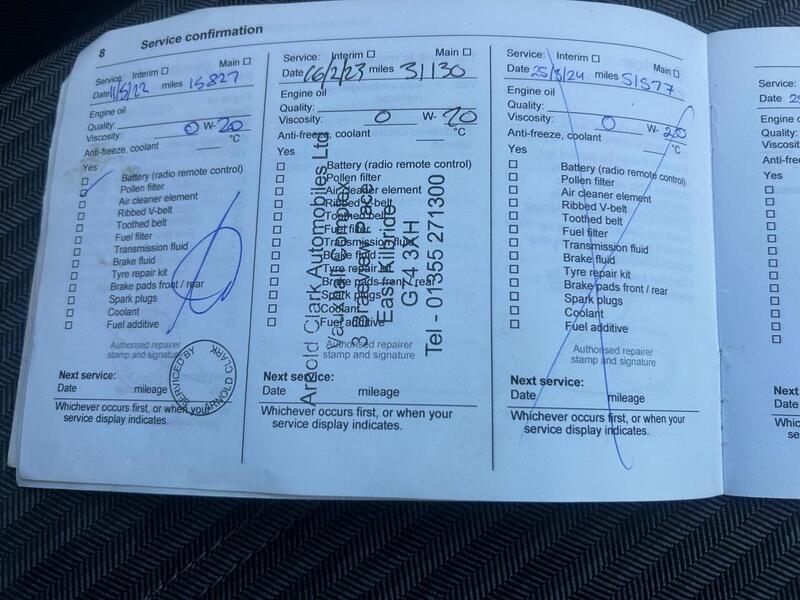 8 Service confirmation
Service: Interim Main
Date 11/5/22 miles 15827
Engine oil
Quality:
Viscosity: 0 W- 20
Anti-freeze, coolant °C
Yes
Battery (radio remote control)
Pollen filter
Air cleaner element
Ribbed V-belt
Toothed belt
Fuel filter
Transmission fluid
Brake fluid
Tyre repair kit
Brake pads front / rear
Spark plugs
Coolant
Fuel additive
Authorised repairer
stamp and signature
SERVICED BY ARNOLD CLARK
Next service:
Date mileage
Whichever occurs first, or when your
service display indicates.
Service: Interim Main
Date 16/2/23 miles 31130
Engine oil
Quality:
Viscosity: 0 W- 20
Anti-freeze, coolant °C
Yes
Battery (radio remote control)
Pollen filter
Air cleaner element
Ribbed V-belt
Toothed belt
Fuel filter
Transmission fluid
Brake fluid
Tyre repair kit
Brake pads front / rear
Spark plugs
Coolant
Fuel additive
Authorised repairer
stamp and signature
Arnold Clark Automobiles Ltd
East Kilbride
G74 3XH
Tel - 01355 271300
Next service:
Date mileage
Whichever occurs first, or when your
service display indicates.
Service: Interim Main
Date 25/3/24 miles 51577
Engine oil
Quality:
Viscosity: 0 W- 20
Anti-freeze, coolant °C
Yes
Battery (radio remote control)
Pollen filter
Air cleaner element
Ribbed V-belt
Toothed belt
Fuel filter
Transmission fluid
Brake fluid
Tyre repair kit
Brake pads front / rear
Spark plugs
Coolant
Fuel additive
Authorised repairer
stamp and signature
Next service:
Date mileage
Whichever occurs first, or when your
service display indicates.
Service:
Date
Engine
Quality:
Viscosity:
Anti-free
Yes
Next
Date